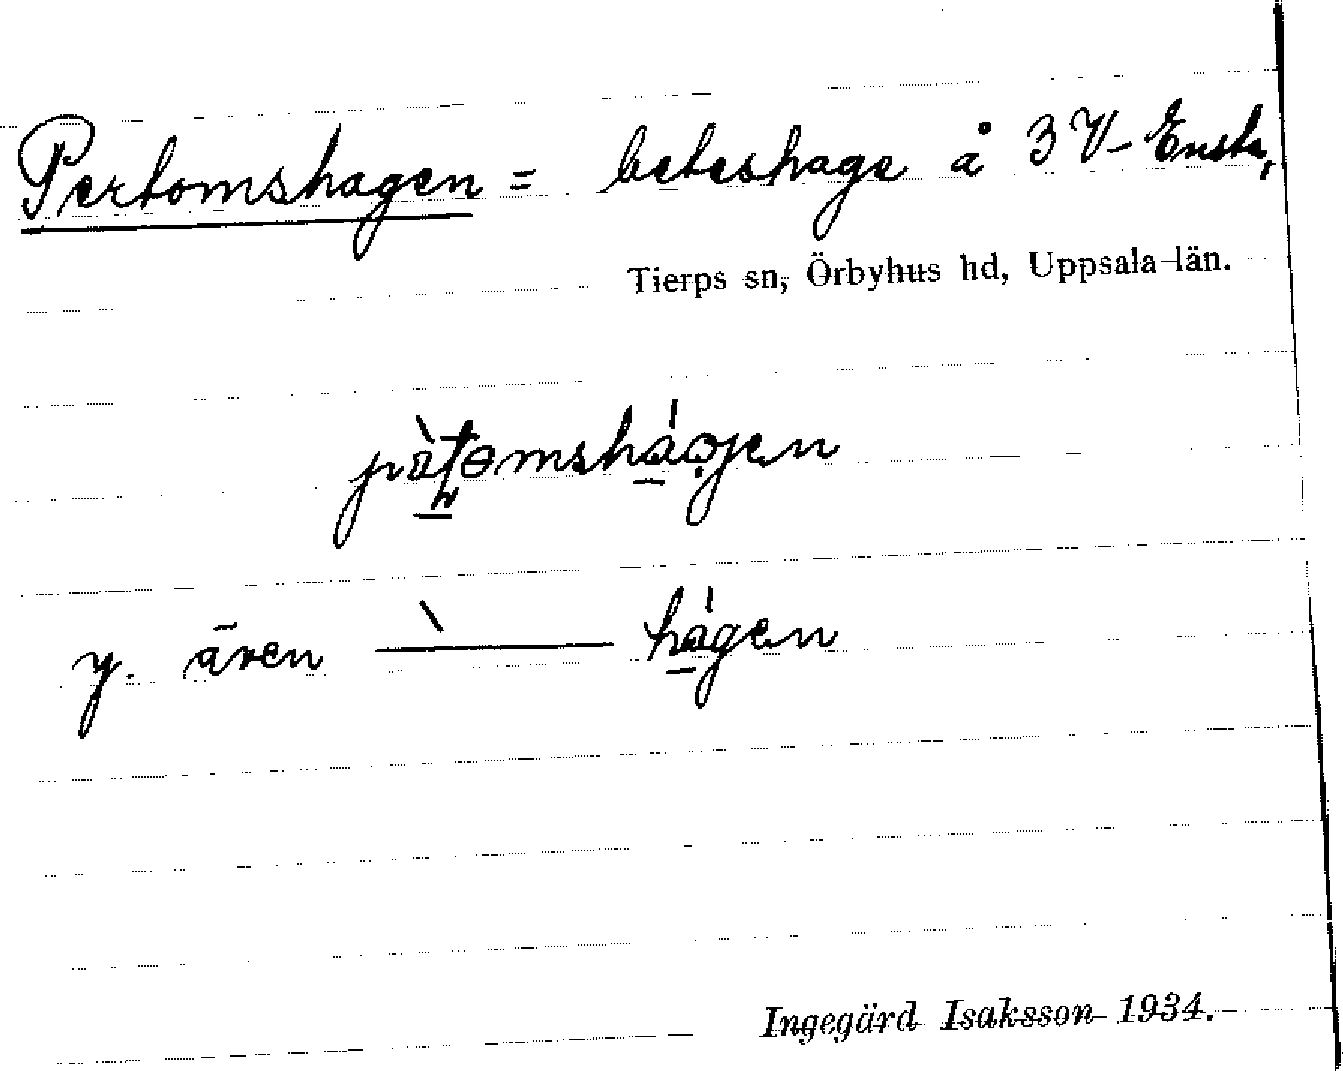 Pertomshagen = beteshage å 3 V-Ensta,
Tierps sn, Örbyhus hd, Uppsala län.
y. även — hágen
Ingegärd Isaksson 1934.